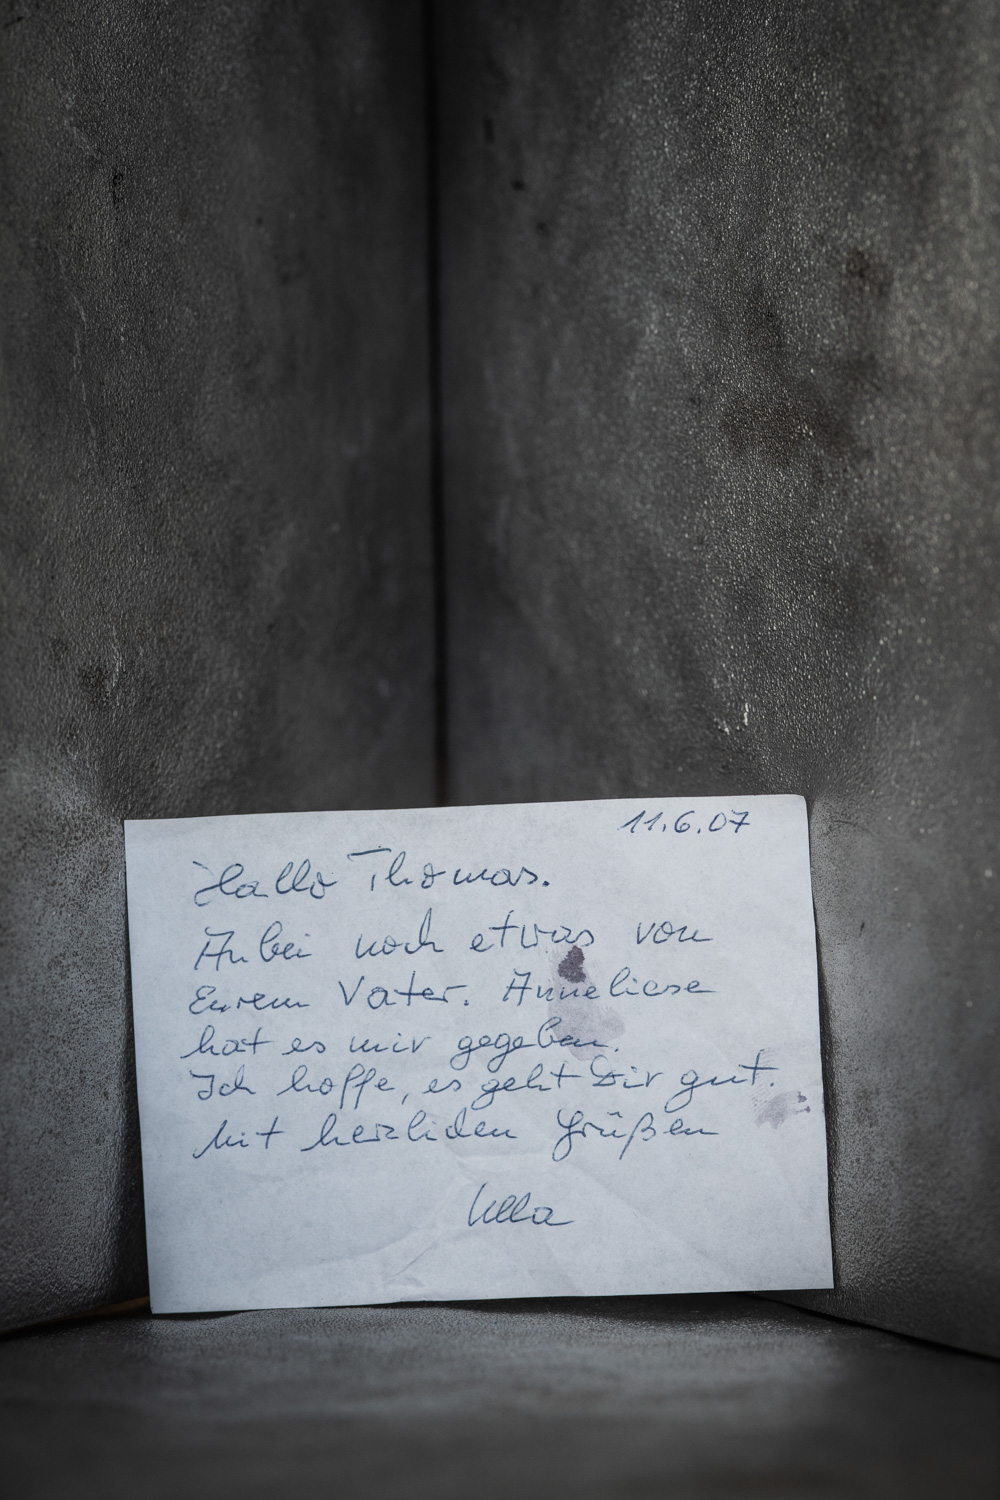 11.6.07
Hallo Thomas.
Anbei noch etwas von
Eurem Vater. Anneliese
hat es mir gegeben.
Ich hoffe, es geht Dir gut.
Mit herzlichen Grüßen
Ulla